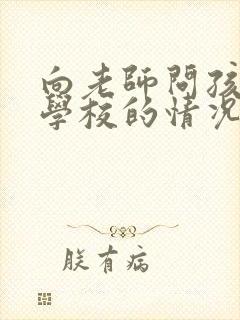 向老師問孩
學校的情況
朕有病